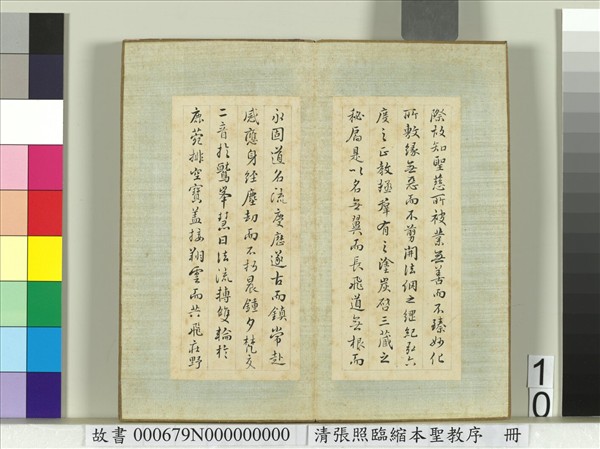 際故知聖慈所被業無善而不臻妙化
所敷緣無惡而不剪開法網之綱紀弘六
度之正教拯群有之塗炭啓三藏之
秘扃是以名無翼而長飛道無根而
永固道名流慶歷遂古而鎮常赴
感應身經塵劫而不朽晨鐘夕梵交
二音於鷲峯慧日法流轉雙輪於
鹿菀排空寶蓋接翔雲而共飛莊野
10
故書 000679N000000000
清張照臨縮本聖教序 冊